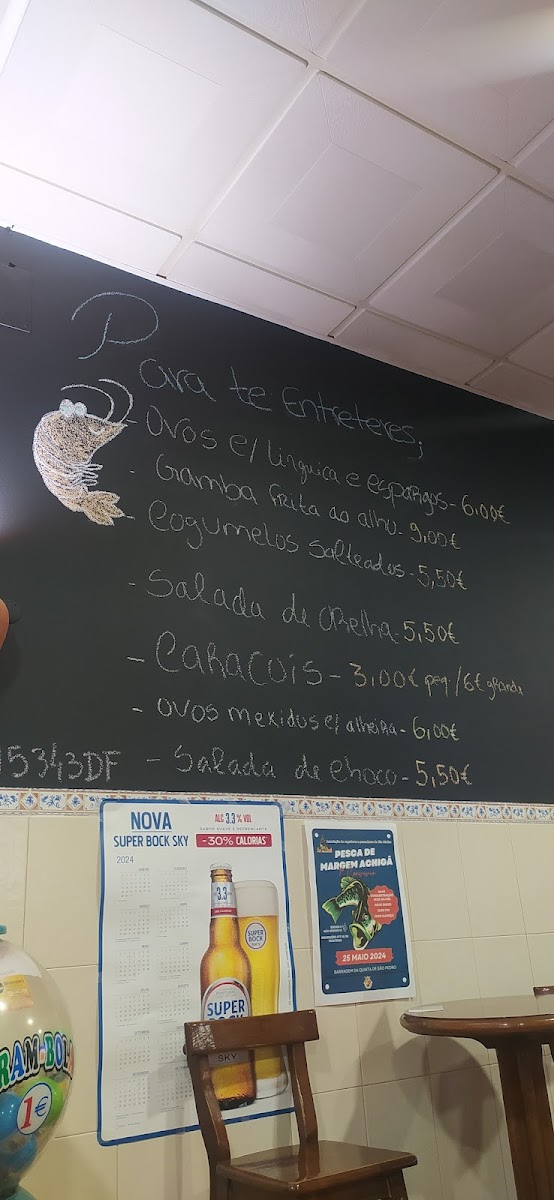 Para te Entreteres;
- Ovos c/ linguiça e espargos - 6,00€
- Gamba frita ao alho - 9,00€
- Cogumelos Salteados - 5,50€
- Salada de ORelha - 5,50€
- CaRacois - 3,00€ peq. / 6€ grande
- ovos mexidos c/ alheira - 6,00€
- Salada de choco - 5,50€
15343DF
NOVA
SUPER BOCK SKY
2024
ALC 3.3% VOL
SABOR SUAVE E REFRESCANTE
-30% CALORIAS
3.3
SUPER BOCK
SUPER
BOCK
SKY
PESCA DE
MARGEM ACHIGÃ
25 MAIO 2024
BARRAGEM DA QUINTA DE SÃO PEDRO
RAM-BOL
1€